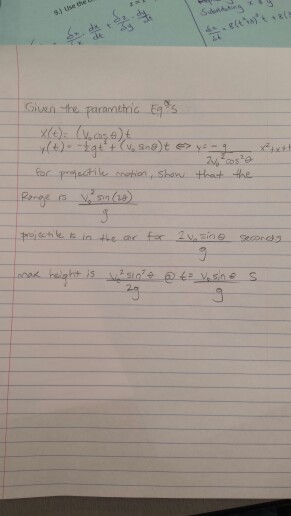 9.) Use the
dx/dt + dz/dy · dy/dt
Substituting x & y
Given the parametric Eqⁿs
x(t) = (V₀ cos θ)t
y(t) = -½gt² + (V₀ sinθ)t ⇔ y = -g/(2V₀²cos²θ) x² + x +
for projectile motion, show that the
Range is V₀² sin(2θ)/g
projectile is in the air for 2V₀ sinθ/g seconds
max height is V₀² sin²θ/2g @ t = V₀ sin θ/g S